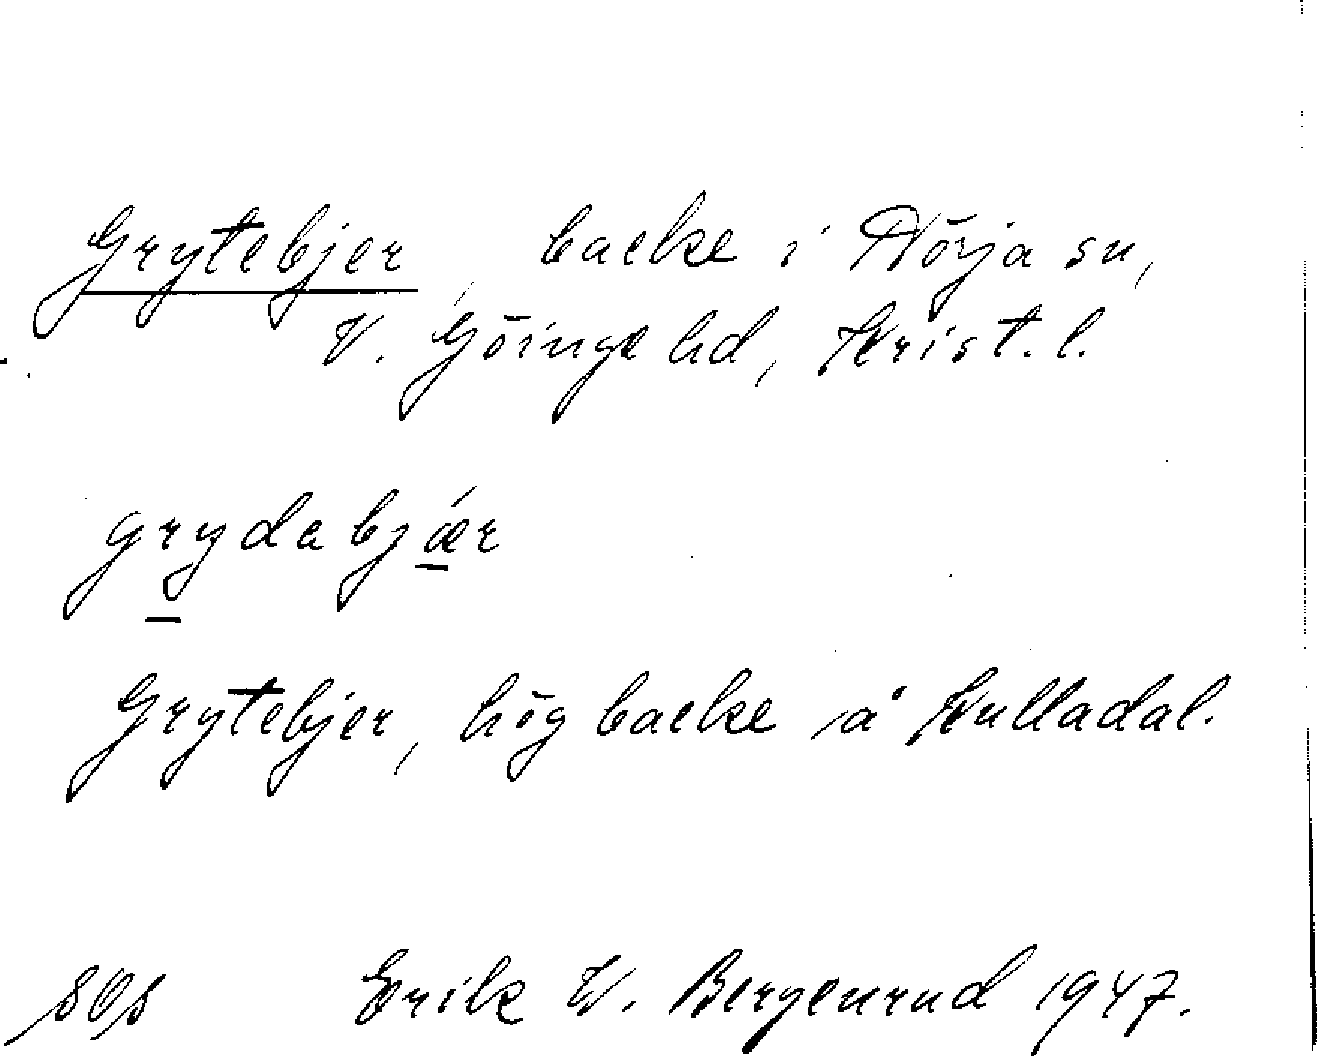 Grytebjer, backe i Nörja sn,
V. Göinge hd, Krist. l.
grydabjǽr
Grytebjer, hög backe å Kulladal.
Erik W. Bergenrud 1947.